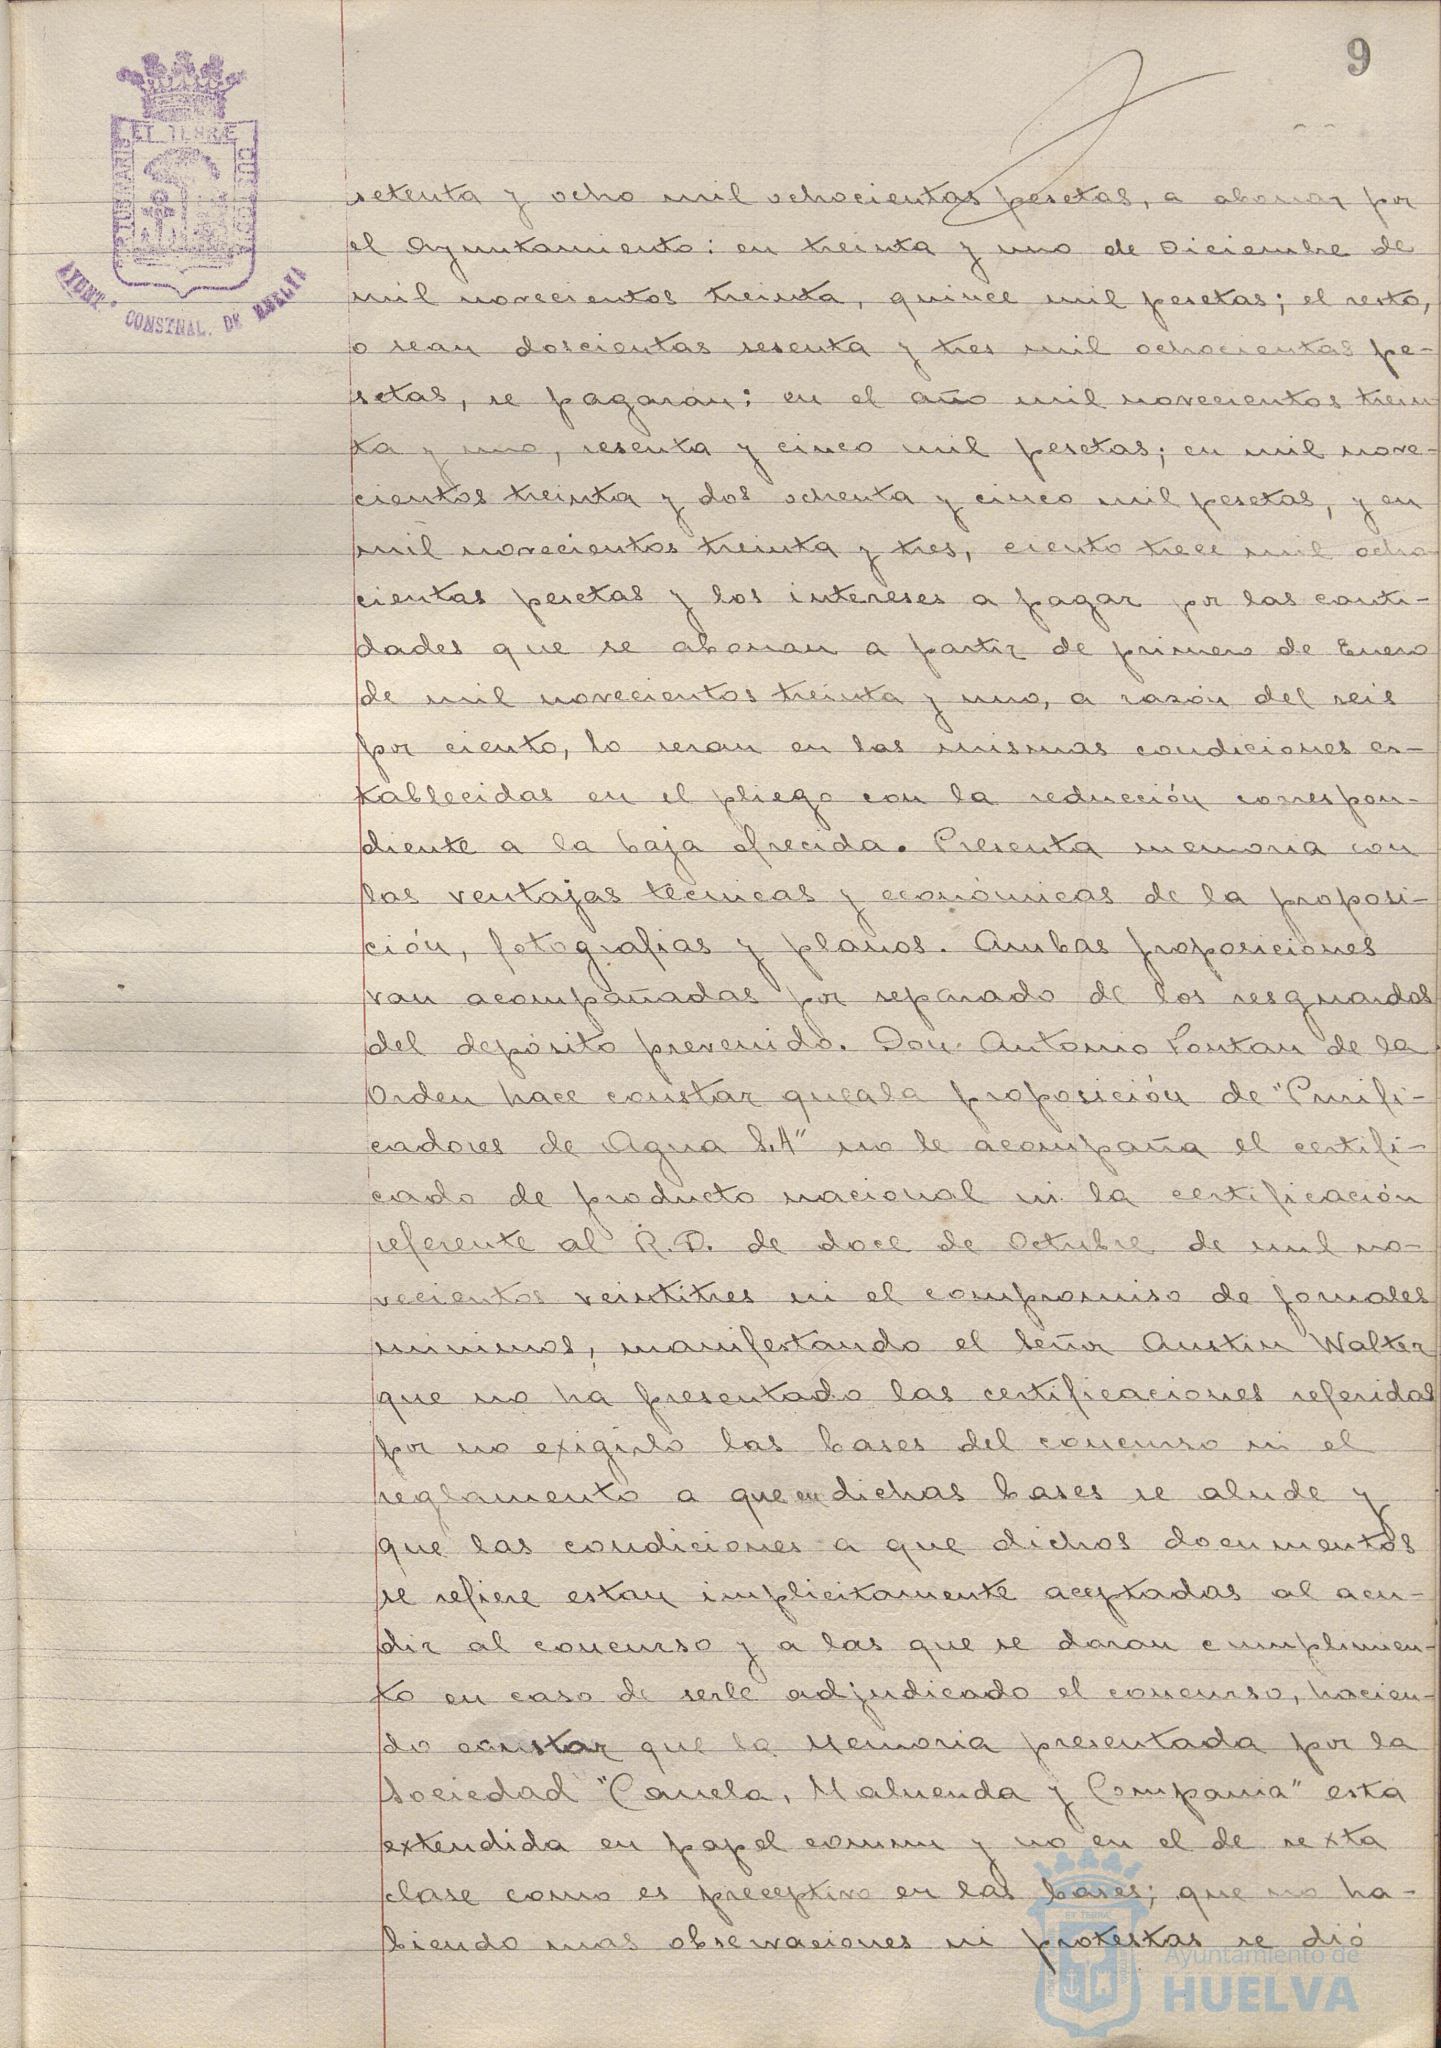 9
ET TERRÆ
PORTUS MARIS
CUSTODIA
AYUNT. CONSTNAL. DE HUELVA
setenta y ocho mil ochocientas pesetas, a abonar por
el Ayuntamiento: en treinta y uno de Diciembre de
mil novecientos treinta, quince mil pesetas; el resto,
o sean doscientas sesenta y tres mil ochocientas pe-
setas, se pagaran: en el año mil novecientos trein
ta y uno, sesenta y cinco mil pesetas; en mil nove-
cientos treinta y dos ochenta y cinco mil pesetas, y en
mil novecientos treinta y tres, ciento trece mil ocho
cientas pesetas y los intereses a pagar por las canti-
dades que se abonan a partir de primero de Enero
de mil novecientos treinta y uno, a razón del seis
por ciento, lo seran en las mismas condiciones es-
tablecidas en el pliego con la reducción correspon-
diente a la baja ofrecida. Presenta memoria con
las ventajas técnicas y económicas de la proposi-
ción, fotografias y planos. Ambas proposiciones
van acompañadas por separado de los resguardos
del depósito prevenido. Don Antonio Pontan de la
Orden hace constar que a la proposición de "Purifi-
cadores de Agua S.A" no le acompaña el certifi-
cado de producto nacional ni la certificación
referente al R.D. de doce de Octubre de mil no-
vecientos veintitres ni el compromiso de jornales
minimos, manifestando el Señor Austin Walter
que no ha presentado las certificaciones referidas
por no exigirlo las bases del concurso ni el
reglamento a que en dichas bases se alude y
que las condiciones a que dichos documentos
se refiere estan implicitamente aceptadas al acu-
dir al concurso y a las que se daran cumplimien-
to en caso de serle adjudicado el concurso, hacien-
do constar que la Memoria presentada por la
Sociedad "Canela, Maluenda y Compania" esta
extendida en papel comun y no en el de sexta
clase como es preceptivo en las bases; que no ha-
biendo mas observaciones ni protestas se dió
Ayuntamiento de
HUELVA